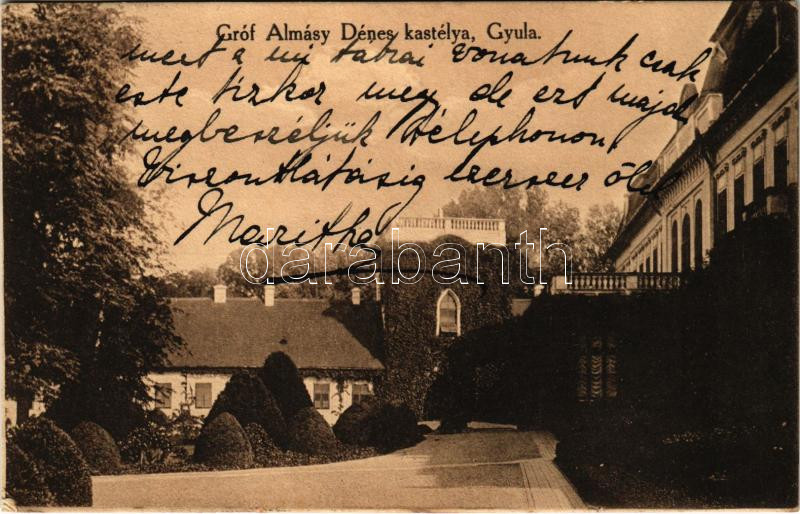 Gróf Almásy Dénes kastélya, Gyula.
mert a mi tábai vonatunk csak
este tizkor megy de ezt majd
megbeszéljük télephonon,
Viszontlátásig ezerszer ölel
Maritha
darabanth